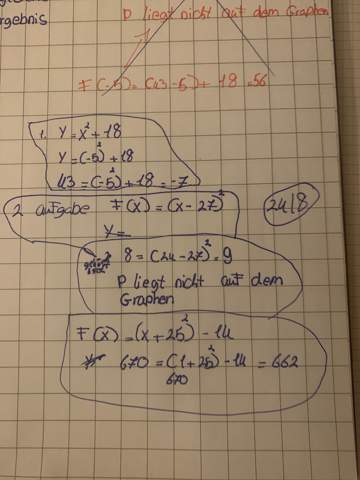 ergebnis
P liegt nicht auf dem Graphen
F(-5) = (43-5)+ 18 = 56
1. y = x² + 18
y = (-5)² + 18
43 = (-5)² + 18 = -7
2 aufgabe F(x) = (x - 27)²
y =
24|8
8 = (24 - 27)² = 9
P liegt nicht auf dem
Graphen
F(x) = (x + 25)² - 14
670 = (1 + 25)² - 14 = 662
670